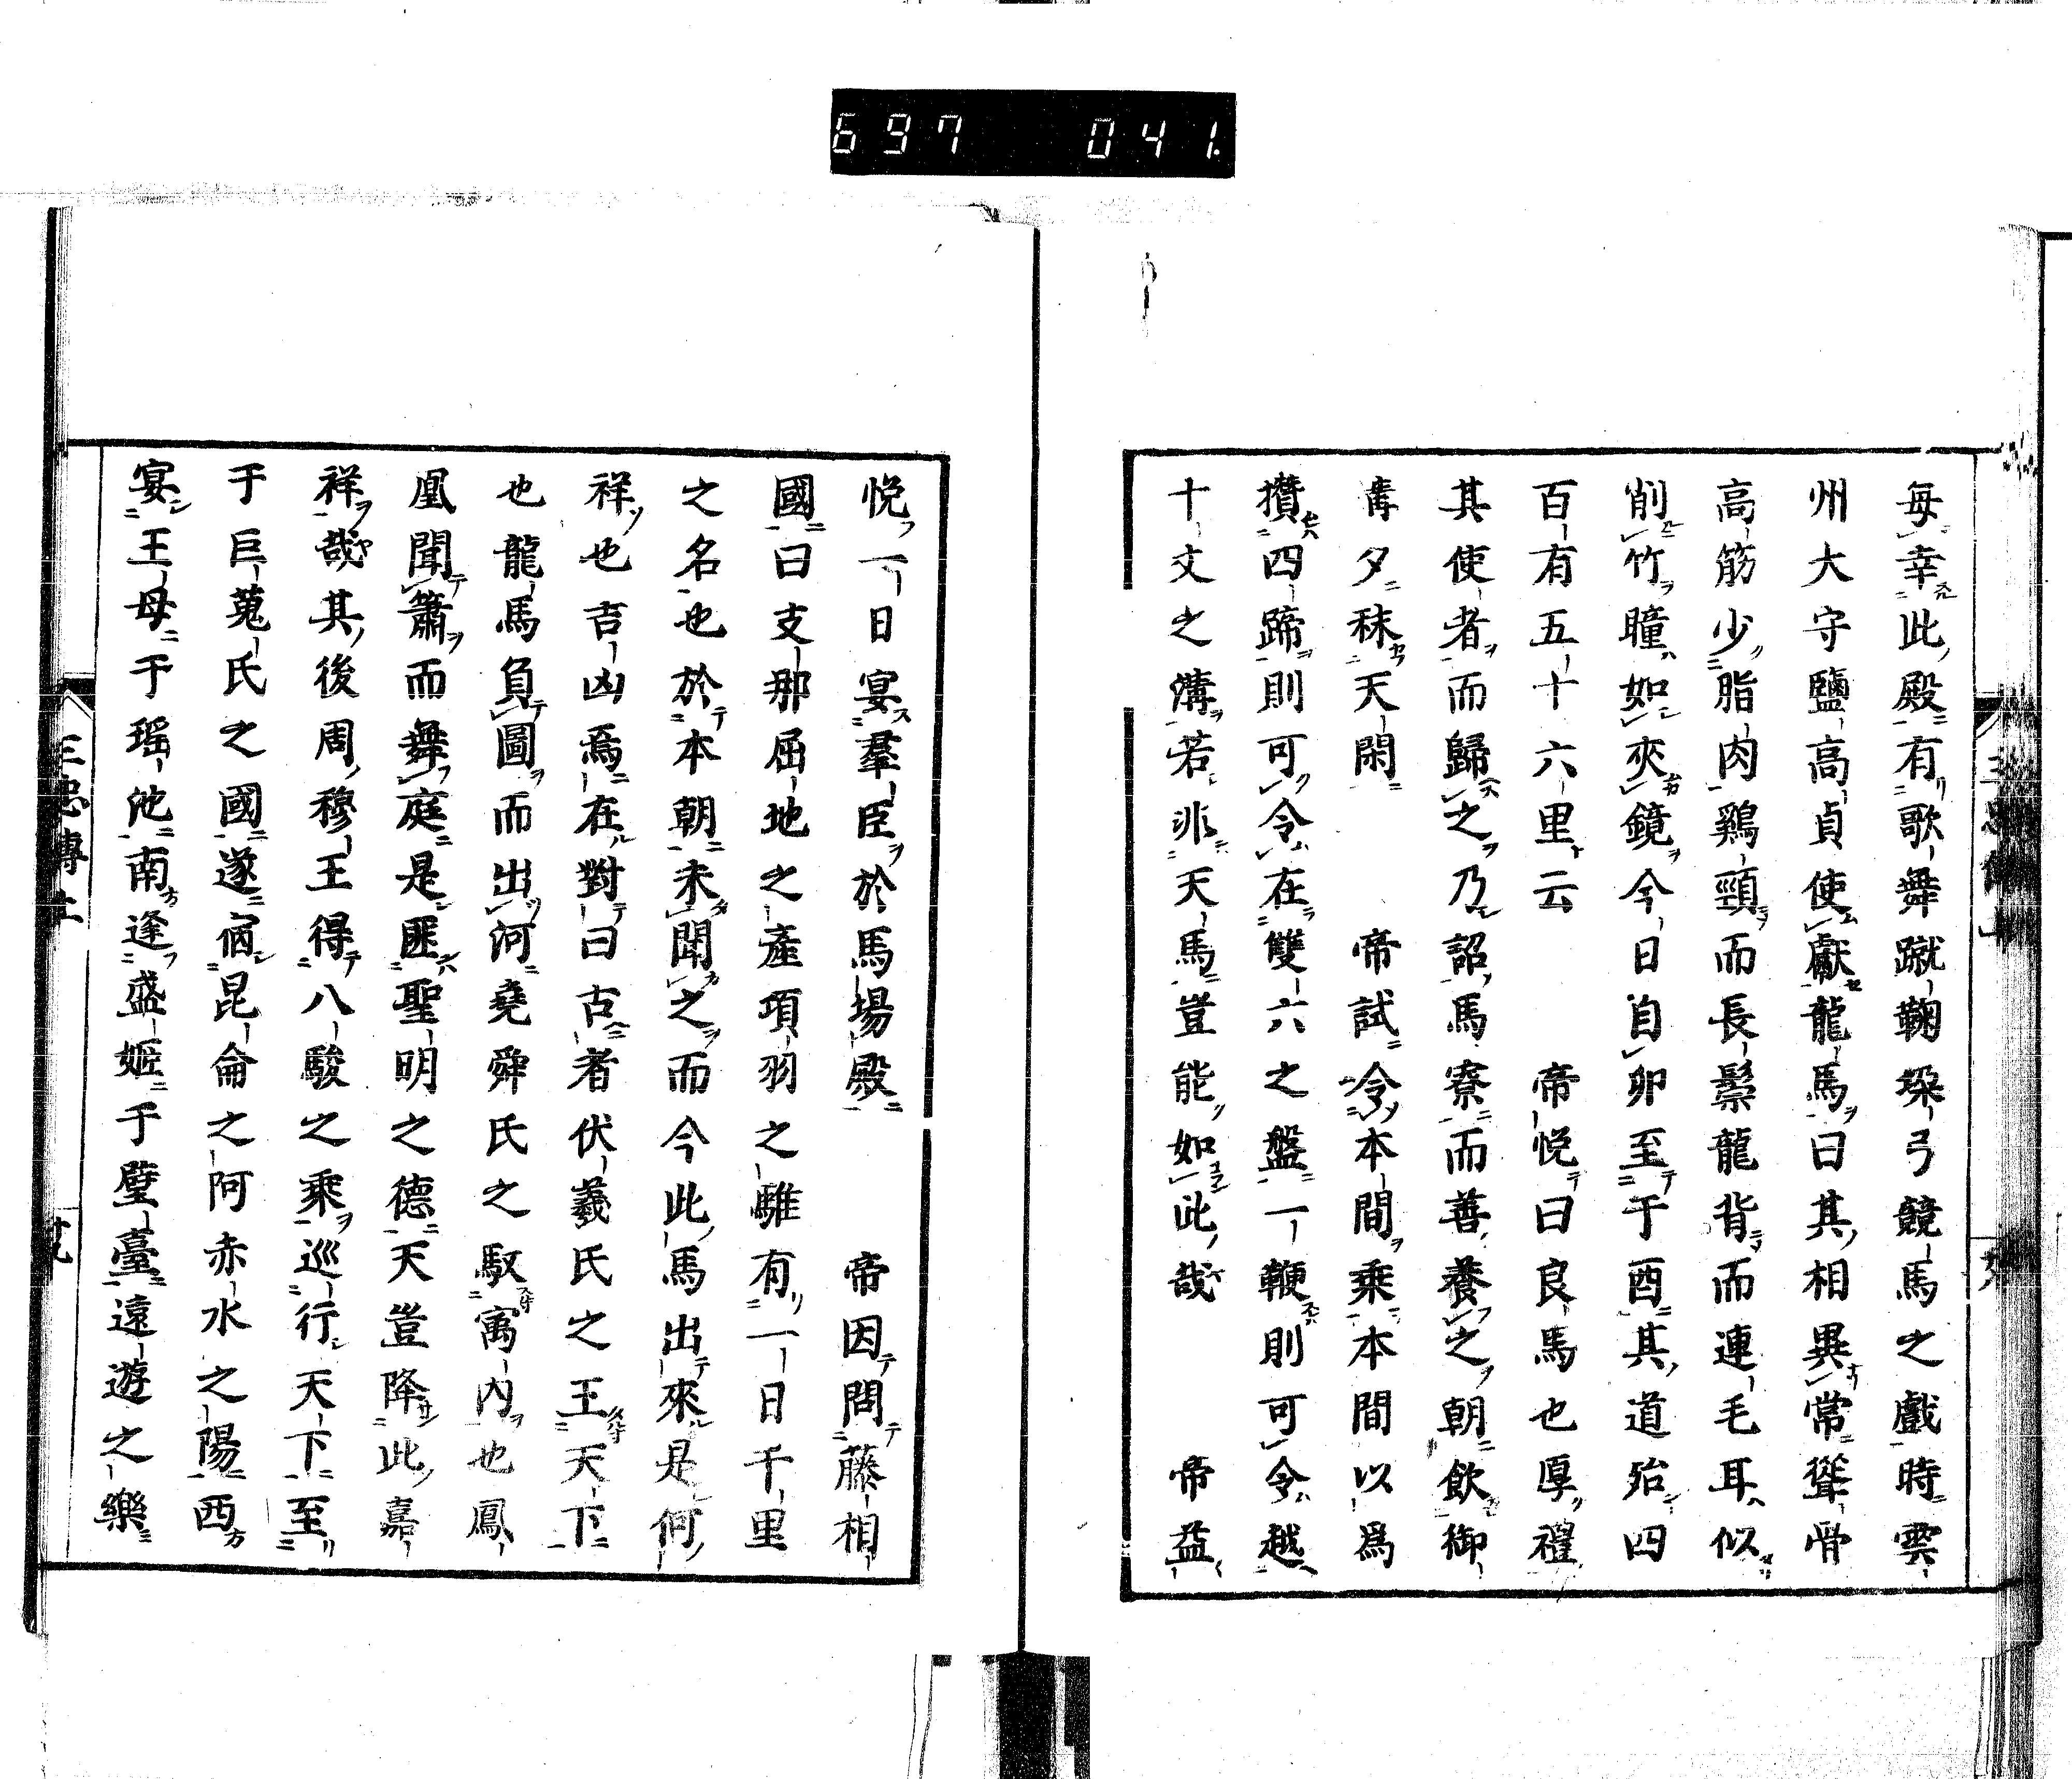 697 041
毎幸此殿有歌舞蹴鞠埒弓競馬之戯時雲
州大守鹽高貞使獻龍馬曰其相異常聳骨
高筋少脂肉鷄頸而長鬃龍背而連毛耳似
削竹瞳如夾鏡今日自卯至于酉其道殆四
百有五十六里云 帝悦曰良馬也厚禮
其使者而歸之乃詔馬寮而善養之朝飲御
溝夕秣天閑 帝試令本間乘本間以爲
攅四蹄則可令在雙六之盤一鞭則可令越
十丈之溝若非天馬豈能如此哉 帝益
悦一日宴羣臣於馬場殿 帝因問藤相
國曰支那屈地之産項羽之騅有一日千里
之名也於本朝未聞之而今此馬出來是何
祥也吉凶焉在對曰古者伏羲氏之王天下
也龍馬負圖而出河堯舜氏之馭寓内也鳳
凰聞簫而舞庭是匪聖明之德天豈降此嘉
祥哉其後周穆王得八駿之乘巡行天下至
于巨蒐氏之國遂宿昆侖之阿赤水之陽西
宴王母于瑶池南逢盛姬于璧臺遠遊之樂
三忠傳上